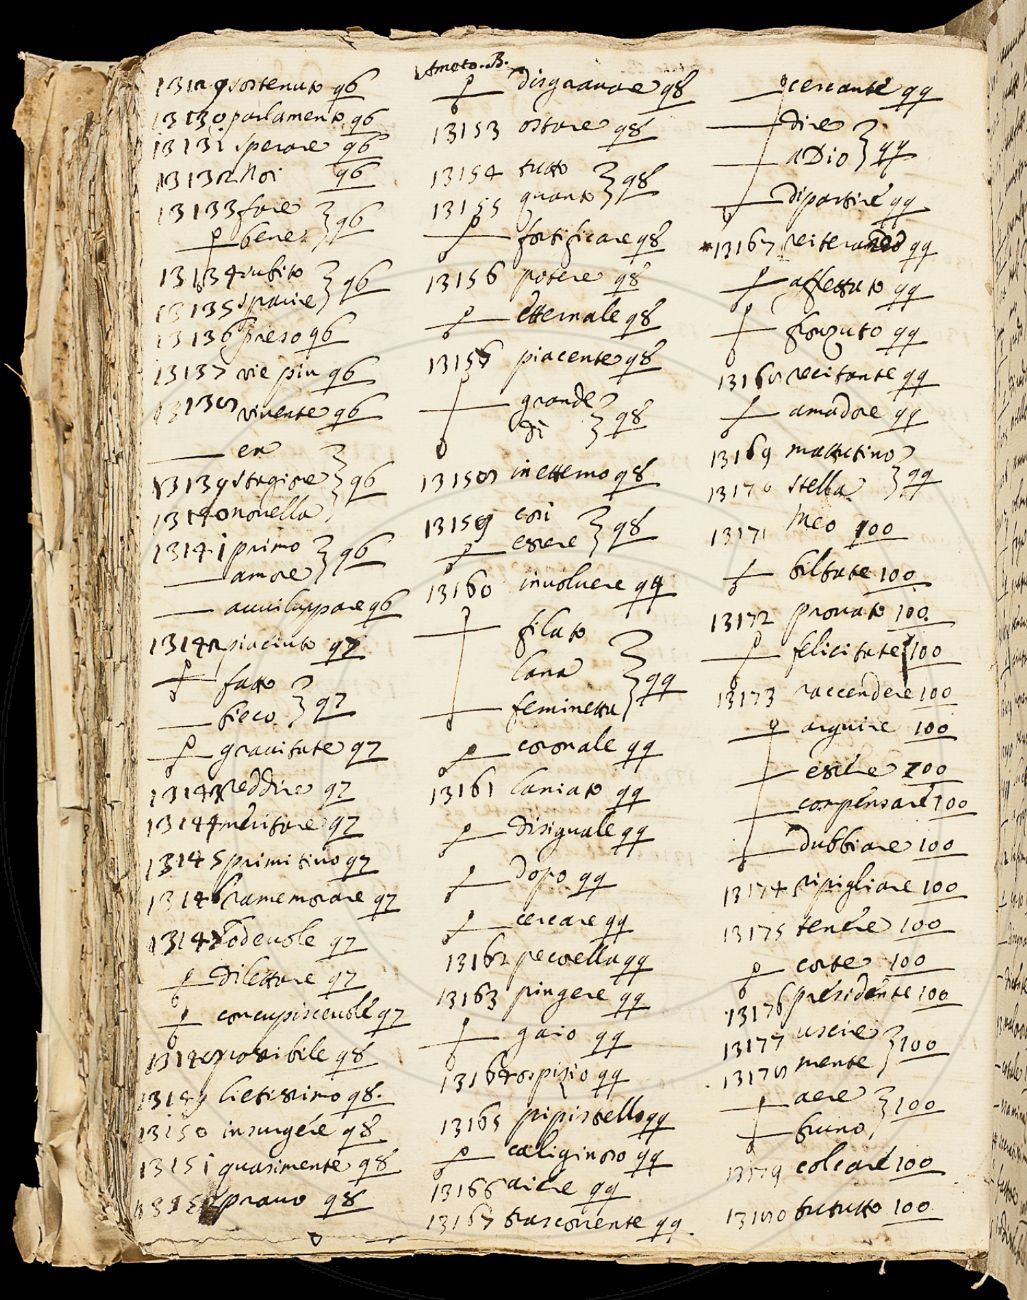 Amoto. B.
13129 sostenuto 96
13130 parlamento 96
13131 sperare 96
13132 Noi 96
13133 fare
bene } 96
13134 subito
13135 sparire } 96
13136 preso 96
13137 vie piu 96
13138 vivente 96
en
13139 stagione
13140 novella } 96
13141 primo
amore } 96
avviluppare 96
13142 piaciuto 97
fatto
bieco } 97
gravitate 97
13143 reddire 97
13144 meritare 97
13145 primitivo 97
13146 ramemorare 97
13147 lodevole 97
dilettare 97
concupiscevole 97
13148 possibile 98
13149 lietissimo 98.
13150 insurgere 98
13151 quasimente 98
13152 pravo 98
disgravare 98
13153 ostare 98
13154 tutto
13155 quanto } 98
fortificare 98
13156 potere 98
etternale 98
13156 piacente 98
grande
di } 98
13158 in etterno 98
13159 cosi
essere } 98
13160 involvere 99
filato
lana
feminetta } 99
coronale 99
13161 laniato 99
disiguale 99
dopo 99
cercare 99
13162 pecorella 99
13163 pingere 99
gaio 99
13164 ospizio 99
13165 pipistello 99
caliginoso 99
13166 aire 99
13167 trascorrente 99
cercante 99
dire
aDio } 99
dipartire 99
13167 99
affettato 99
forzuto 99
13168 recitante 99
amadore 99
13169 mattutino
13170 stella } 99
13171 Meo 100
biltate 100
13172 provato 100
felicitate 100
13173 raccendere 100
arguire 100
essere 100
compensare 100
dubbiare 100
13174 ripigliare 100
13175 tenere 100
corte 100
13176 presidente 100
13177 uscire
13178 mente } 100
aere
bruno } 100
13179 colcare 100
13180 tututto 100